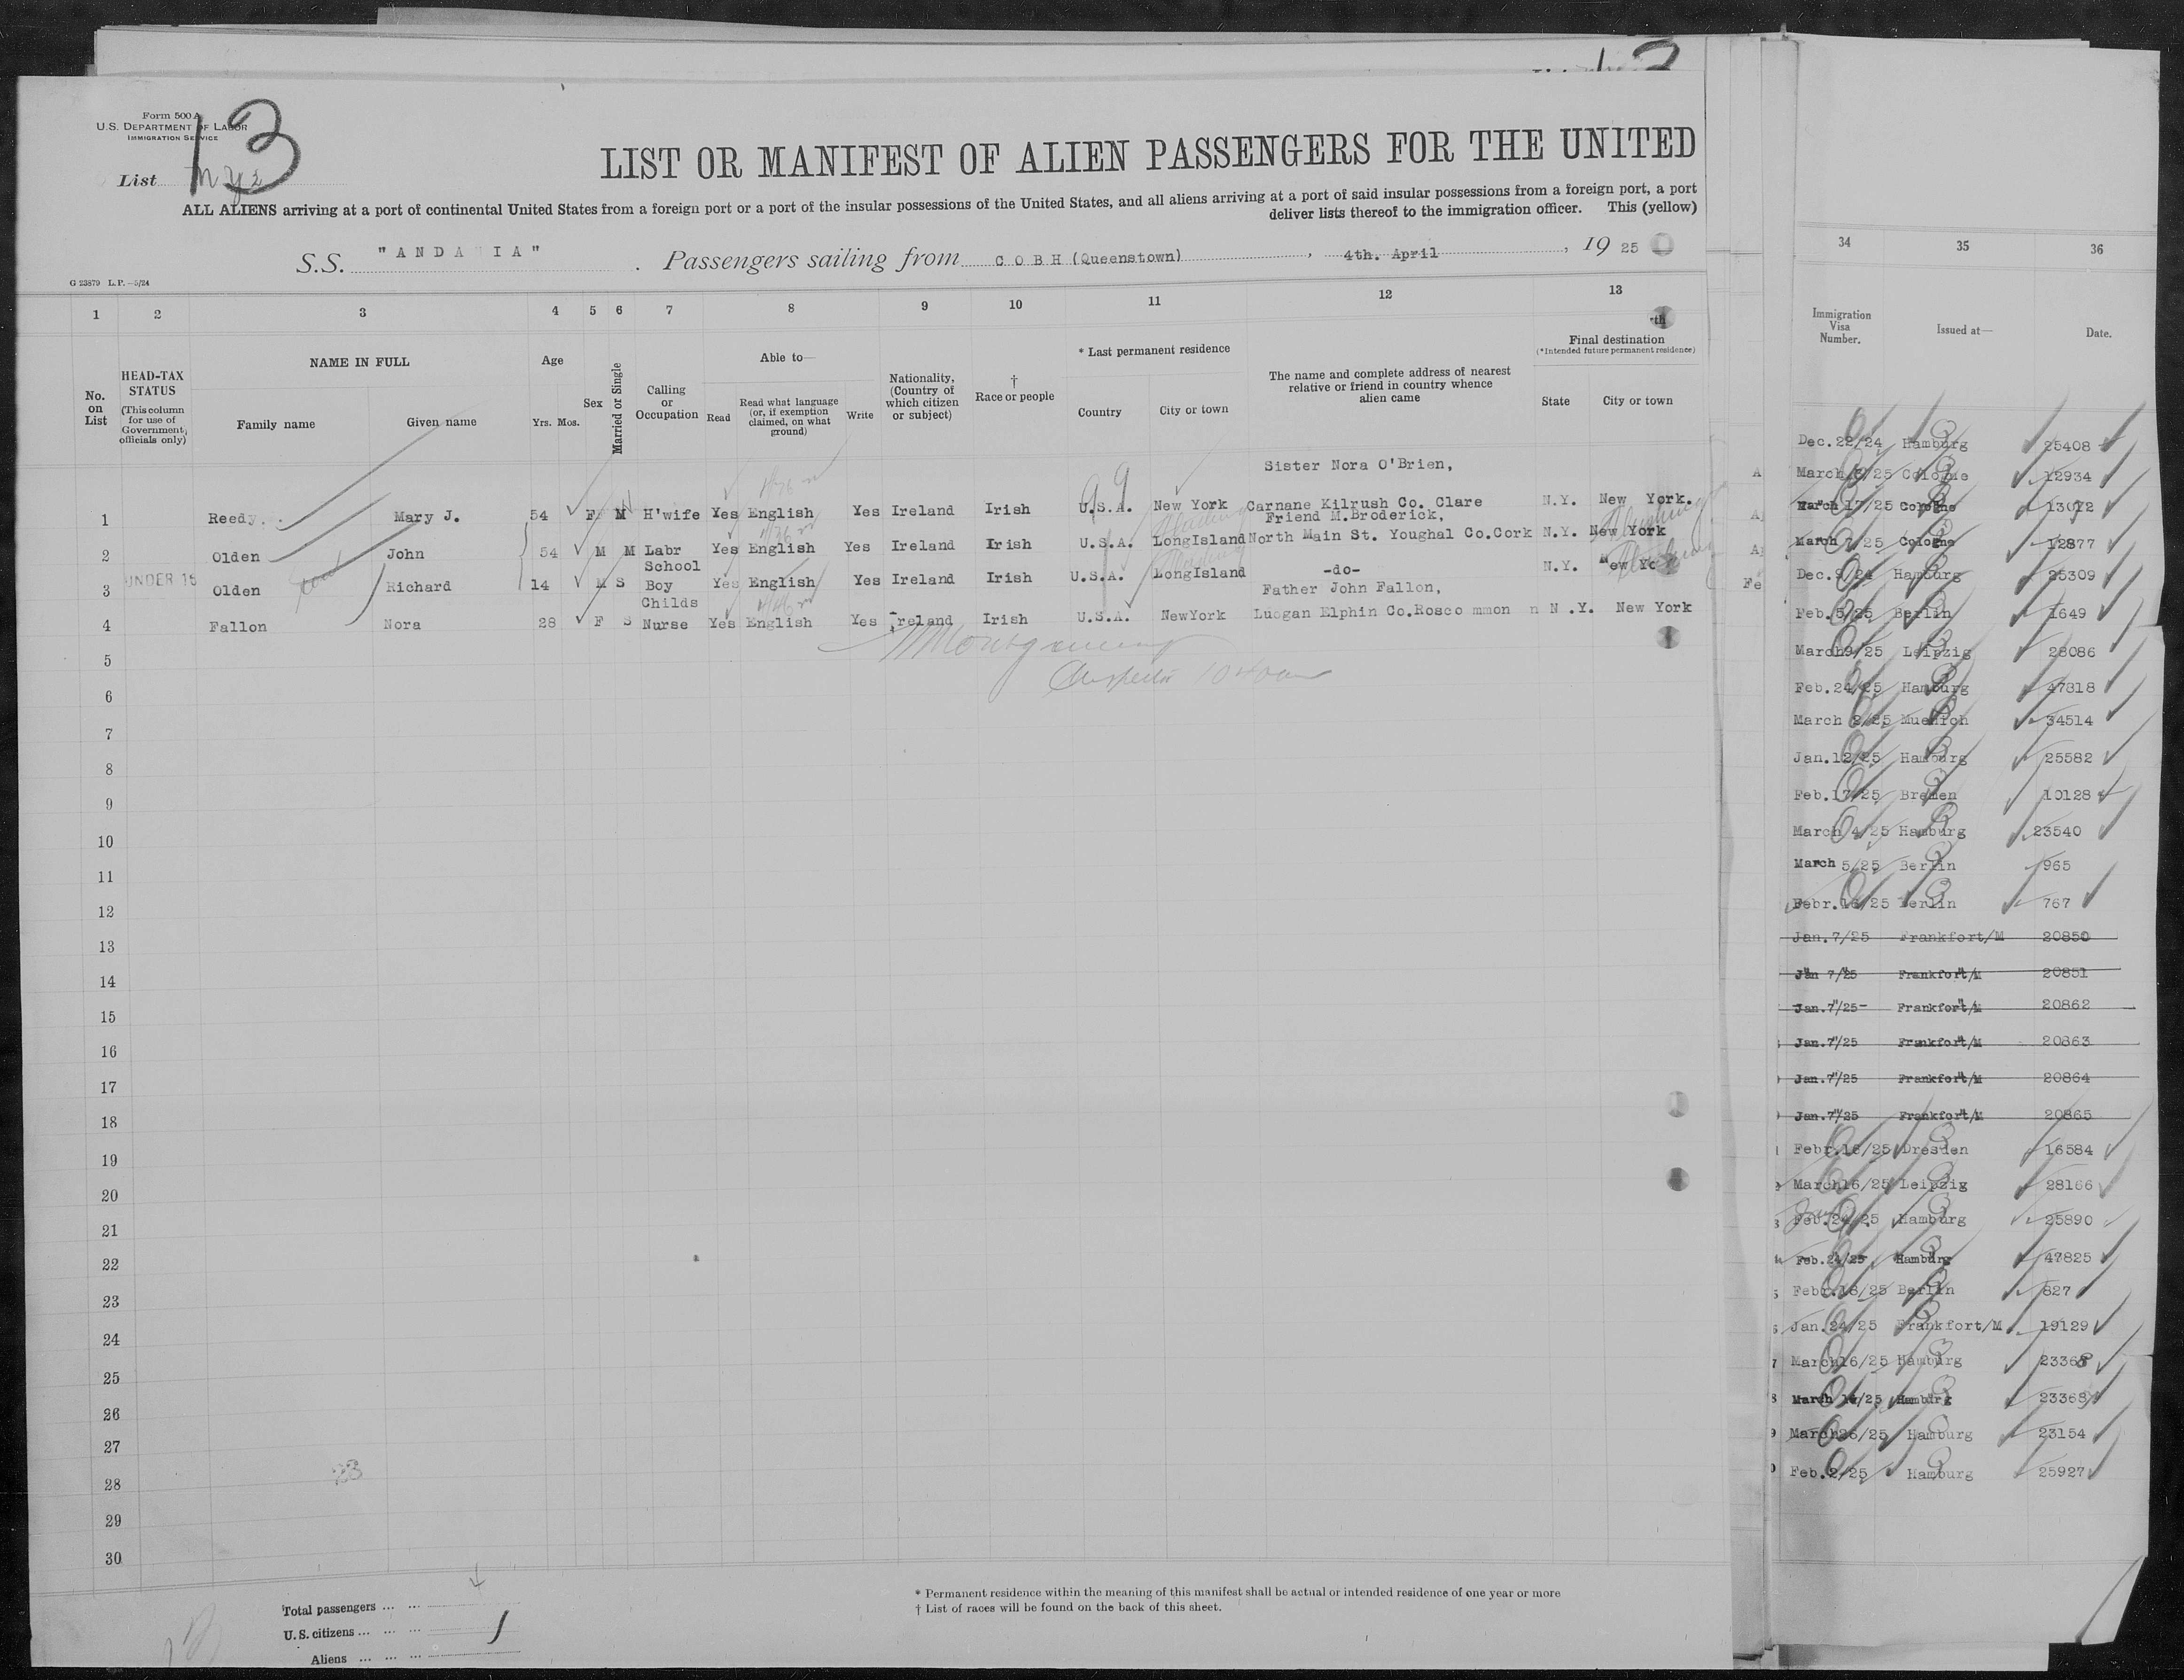 Form 500 A
U.S. DEPARTMENT OF LABOR
IMMIGRATION SERVICE
13
List
LIST OR MANIFEST OF ALIEN PASSENGERS FOR THE UNITED
ALL ALIENS arriving at a port of continental United States from a foreign port or a port of the insular possessions of the United States, and all aliens arriving at a port of said insular possessions from a foreign port, a port
deliver lists thereof to the immigration officer. This (yellow)
S.S. "ANDANIA" . Passengers sailing from COBH (Queenstown) , 4th. April , 19 25
G 23879 L.P.—5/24
1 2 3 4 5 6 7 8 9 10 11 12 13
No. on List
HEAD-TAX STATUS
(This column for use of Government officials only)
NAME IN FULL
Family name Given name
Age
Yrs. Mos.
Sex
Married or Single
Calling or Occupation
Able to—
Read
Read what language (or, if exemption claimed, on what ground)
Write
Nationality, (Country of which citizen or subject)
† Race or people
* Last permanent residence
Country City or town
The name and complete address of nearest relative or friend in country whence alien came
Final destination
(*Intended future permanent residence)
State City or town
Sister Nora O'Brien,
1 Reedy. Mary J. 54 F M H'wife Yes English Yes Ireland Irish U.S.A. New York Carnane Kilrush Co. Clare N.Y. New York.
Friend M.Broderick,
2 Olden John 54 M M Labr Yes English Yes Ireland Irish U.S.A. LongIsland North Main St. Youghal Co.Cork N.Y. New York
School
3 UNDER 16 Olden Richard 14 M S Boy Yes English Yes Ireland Irish U.S.A. LongIsland -do- N.Y. New York
Childs Father John Fallon,
4 Fallon Nora 28 F S Nurse Yes English Yes Ireland Irish U.S.A. NewYork Luogan Elphin Co.Rosco mmon n N.Y. New York
5
Montgomery
Inspector
6
7
8
9
10
11
12
13
14
15
16
17
18
19
20
21
22
23
24
25
26
27
28
29
30
23
Total passengers ... ...
U.S. citizens ... ... ...
Aliens ... ... ...
* Permanent residence within the meaning of this manifest shall be actual or intended residence of one year or more
† List of races will be found on the back of this sheet.
34 35 36
Immigration Visa Number. Issued at— Date.
Dec.22/24 Hamburg 25408
March /25 Cologne 12934
March 17/25 Cologne 13072
March 7/25 Cologne 12877
Dec.9/24 Hamburg 25309
Feb.5/25 Berlin 1649
March9/25 Leipzig 28086
Feb.24/25 Hamburg 47818
March 2/25 Muenich 34514
Jan.12/25 Hamburg 25582
Feb.17/25 Bremen 10128
March 4/25 Hamburg 23540
March 5/25 Berlin 965
Febr.16/25 Berlin 767
Jan.7/25 Frankfort/M 20850
Jan 7/25 Frankfort/M 20851
Jan.7/25 Frankfort/M 20862
Jan.7/25 Frankfort/M 20863
Jan.7/25 Frankfort/M 20864
Jan.7/25 Frankfort/M 20865
Febr.18/25 Dresden 16584
March16/25 Leipzig 28166
Feb.24/25 Hamburg 25890
Feb.24/25 Hamburg 47825
Febr.18/25 Berlin 827
Jan.24/25 Frankfort/M. 19129
March16/25 Hamburg 23368
March /25 Hamburg 23368
March26/25 Hamburg 23154
Feb.2/25 Hamburg 25927